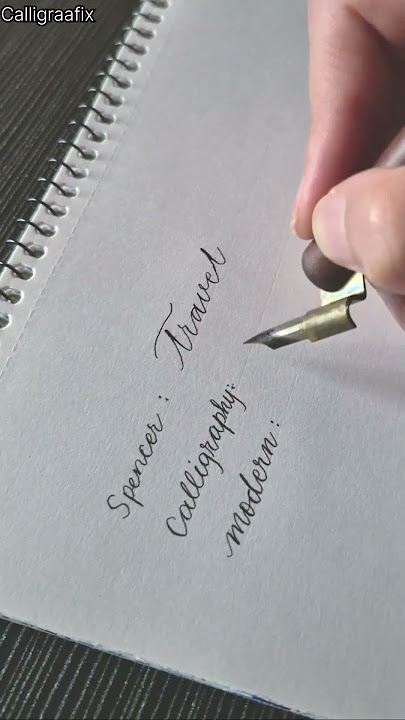 Calligraafix
Spencer : Travel
Calligraphy:
modern :